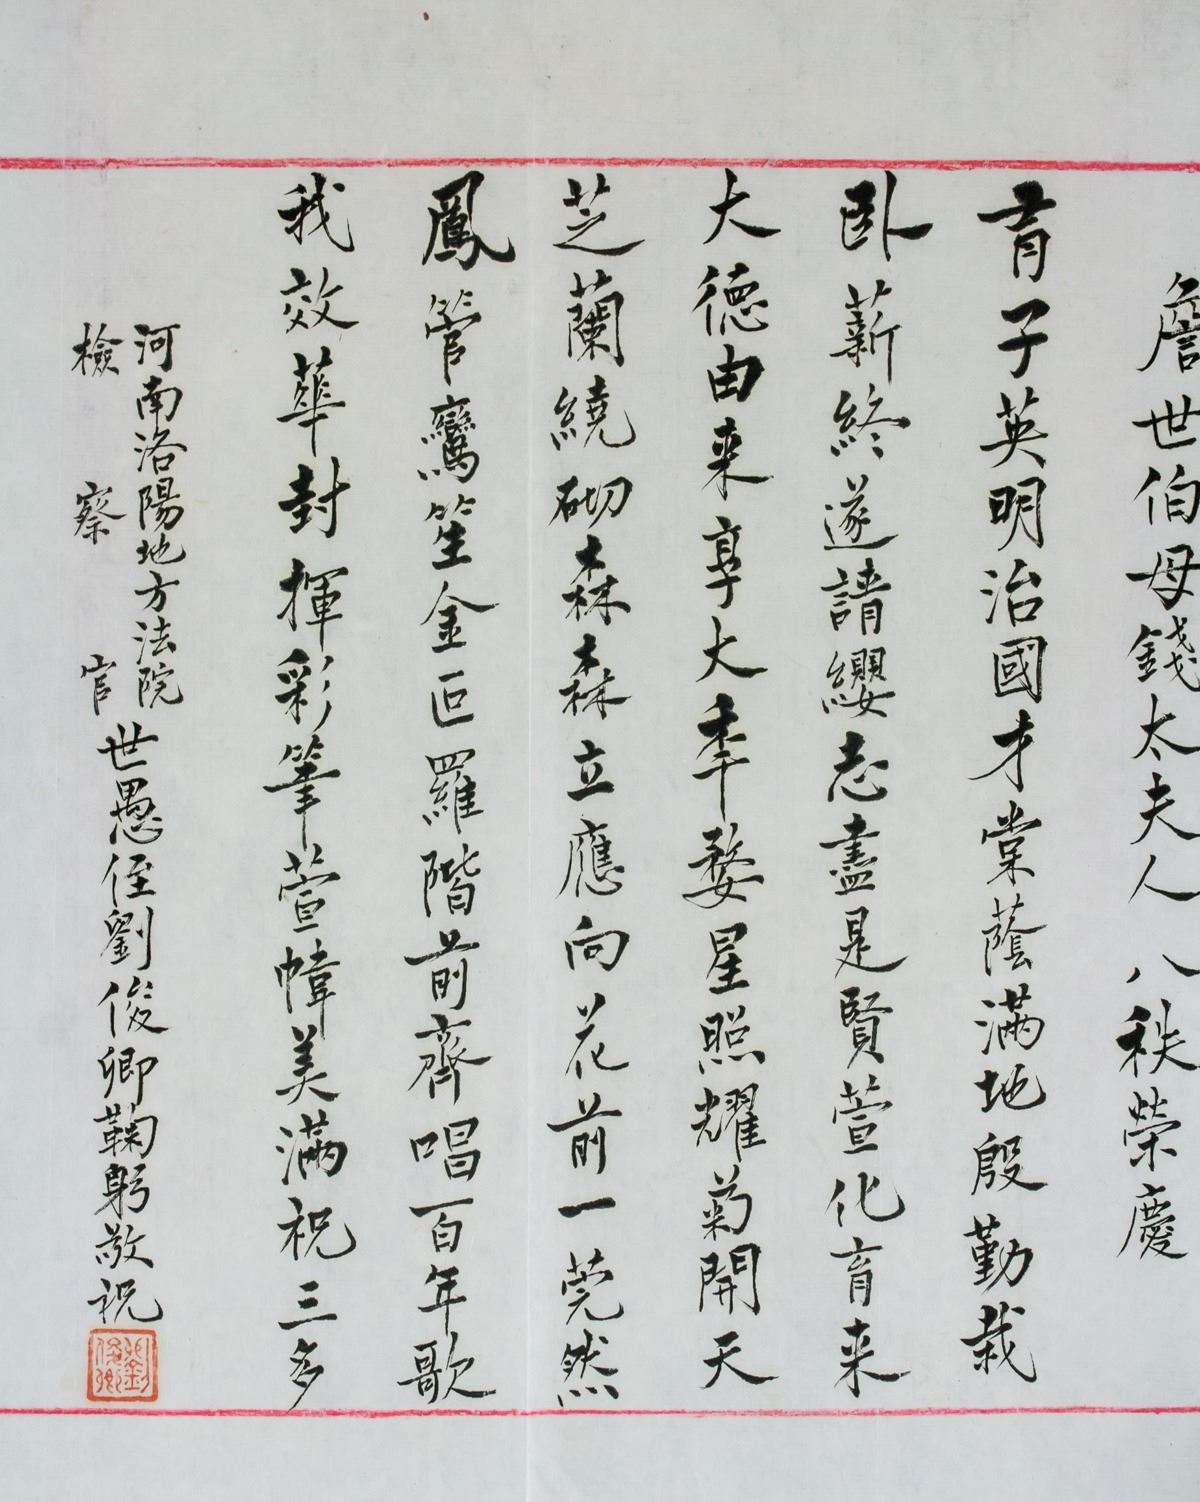 詹世伯母錢太夫人八秩榮慶
育子英明治國才棠蔭滿地殷勤栽
卧薪終遂請纓志盡是賢萱化育来
大德由来享大秊婺星照耀菊開天
芝蘭繞砌森森立應向花前一莞然
鳳管鸞笙金叵羅階前齊唱百年歌
我效華封揮彩筆萱幃美滿祝三多
河南洛陽地方法院
檢察官
世愚侄劉俊卿鞠躬敬祝
劉俊卿